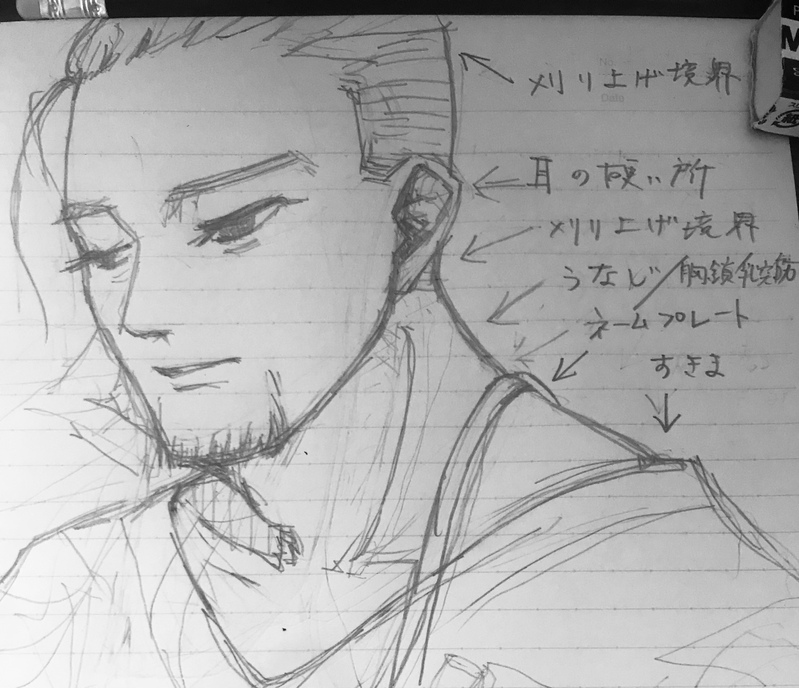 刈り上げ境界
No.
Date
耳の硬い所
刈り上げ境界
うなじ/胸鎖乳突筋
ネームプレート
すきま
M